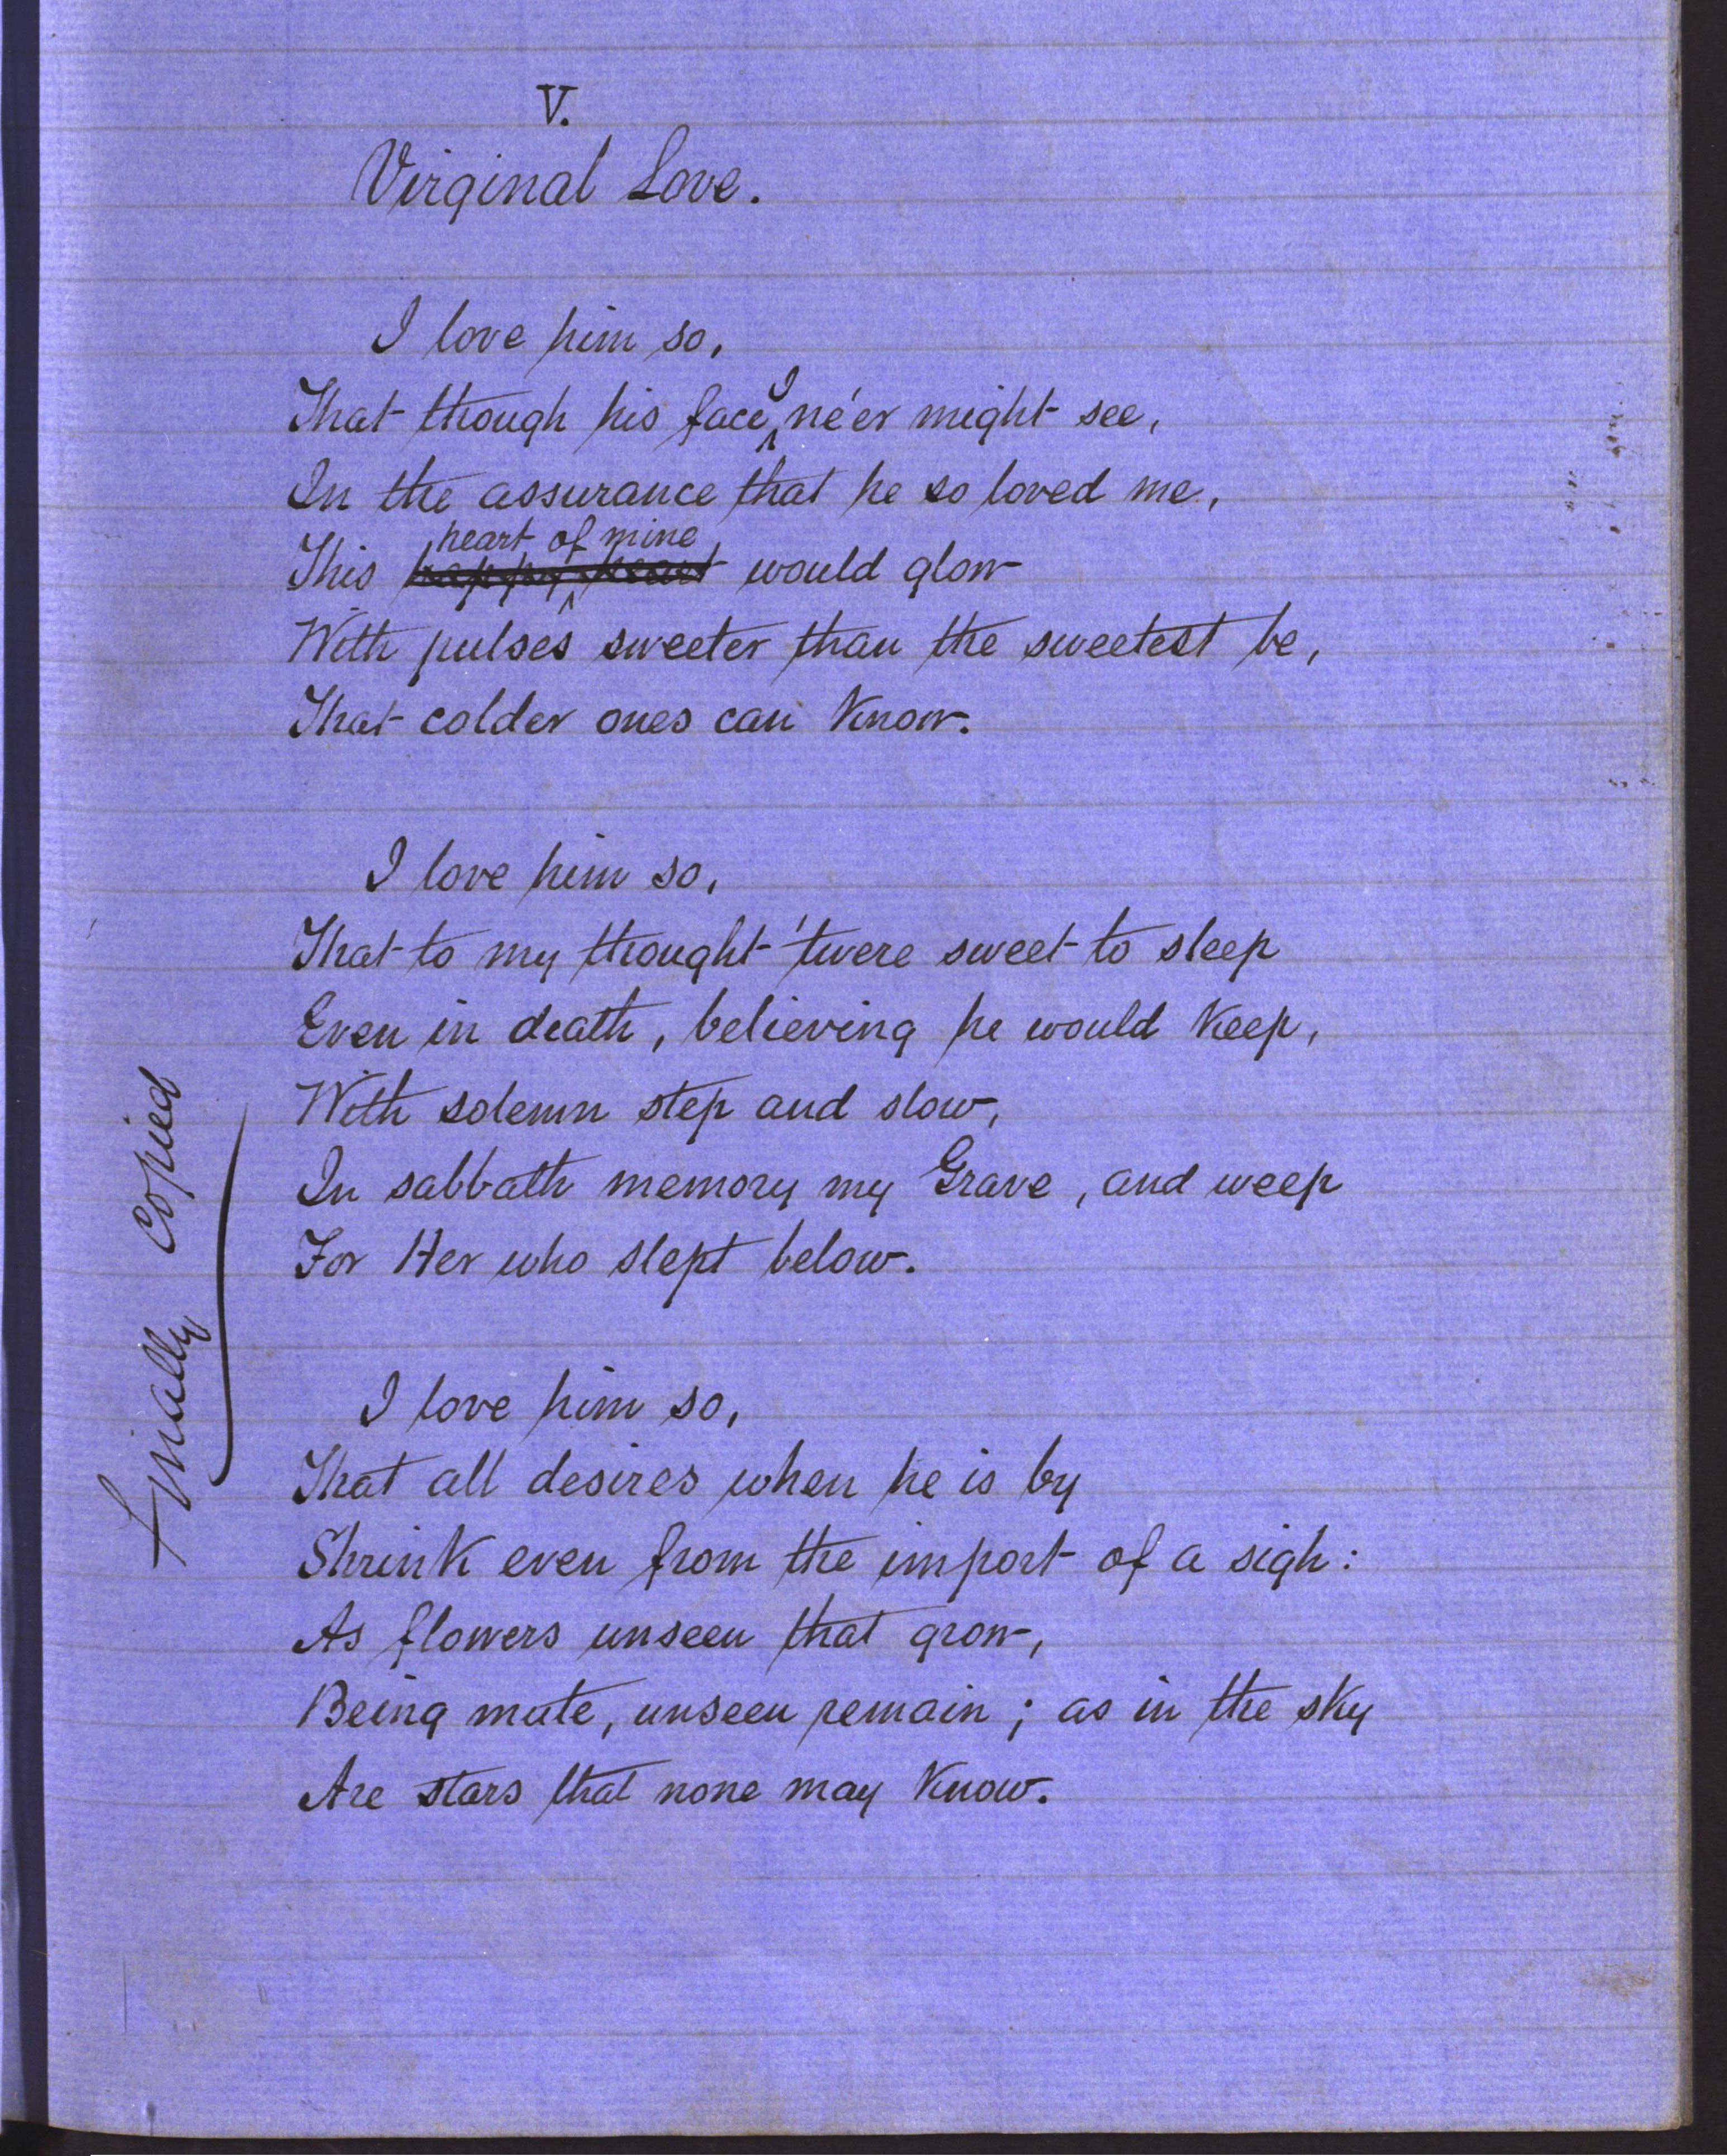 V.
Virginal Love.
I love him so,
That though his face I ne'er might see,
In the assurance that he so loved me,
heart of mine
This happy heart would glow
With pulses sweeter than the sweetest be,
That colder ones can know.
I love him so,
That to my thought 'twere sweet to sleep
Even in death, believing he would keep,
With solemn step and slow,
In sabbath memory my Grave, and weep
For Her who slept below.
I love him so,
That all desires when he is by
Shrink even from the import of a sigh:
As flowers unseen that grow,
Being mute, unseen remain; as in the sky
Are stars that none may know.
Finally Copied